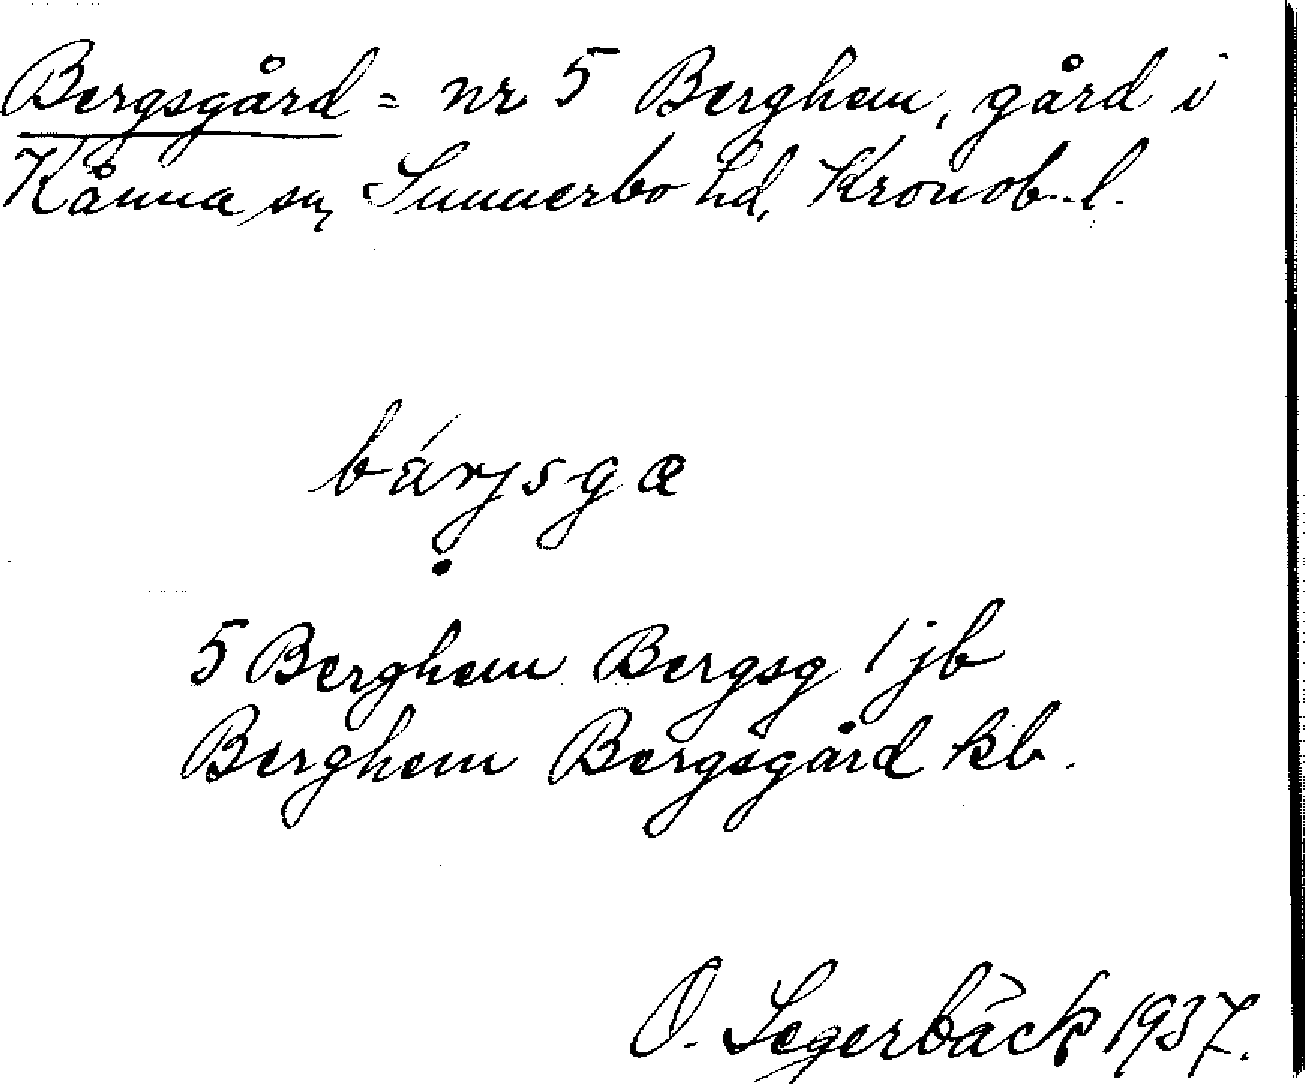 Bergsgård = nr 5 Berghem, gård i
Kånna sn, Sunnerbo hd, Kronob. l.
bárjsgɑ
5 Berghem Bergsg 1 jb
Berghem Bergsgård kb.
O. Segerbäck 1937.